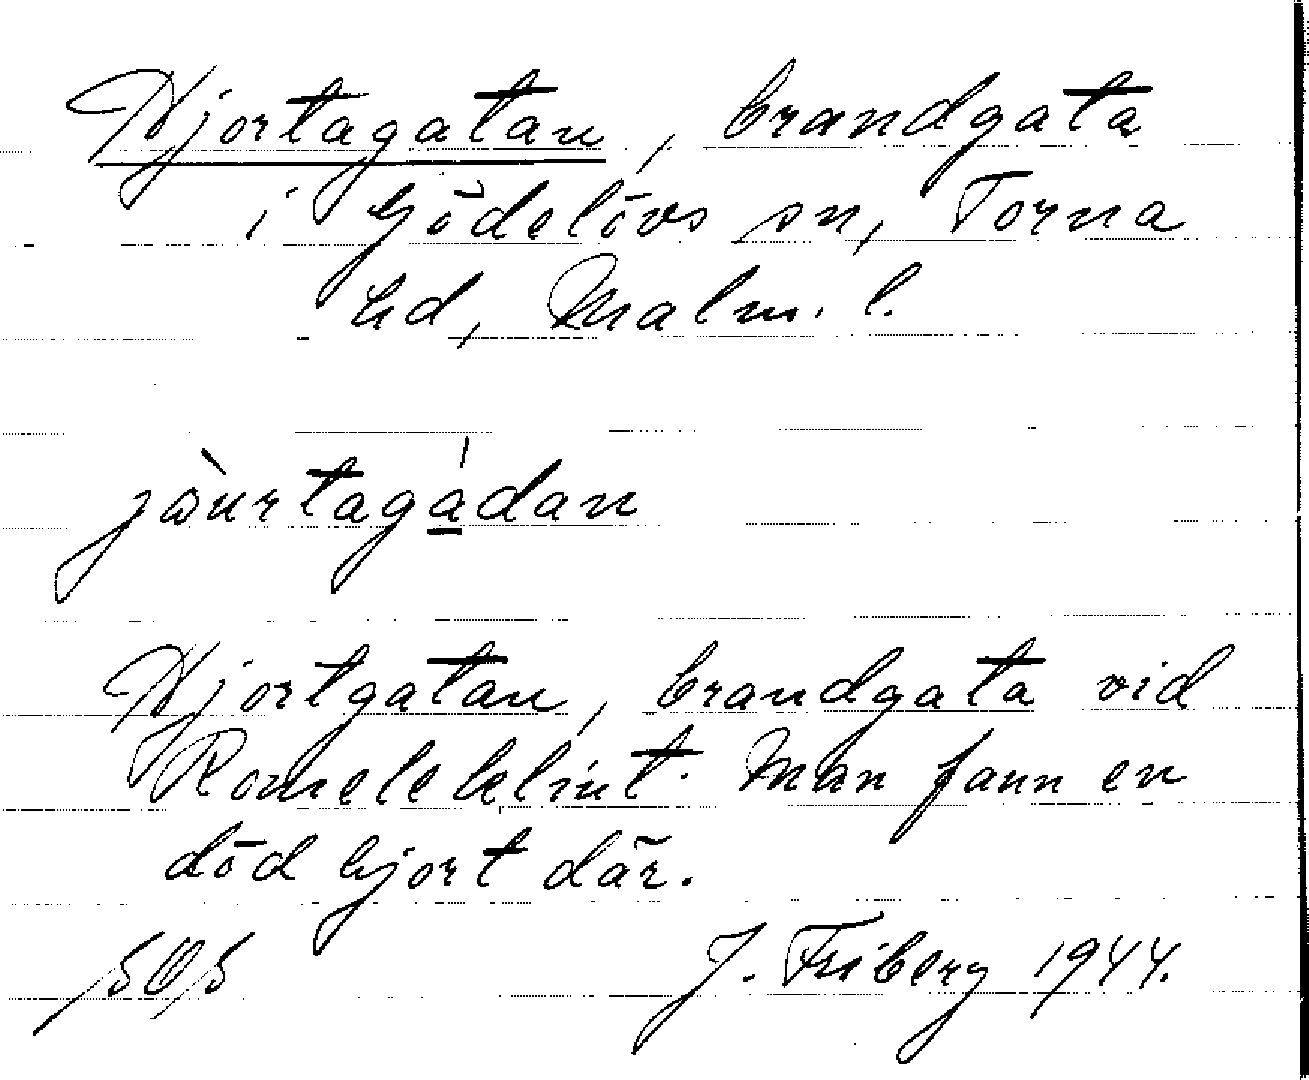 Hjortagatan, brandgata
i Gödelövs sn, Torna
hd, Malm. l.
jöurtagadan
Hjortgatan, brandgata vid
Romeleklint. Man fann en
död hjort där.
J. Friberg 1944.